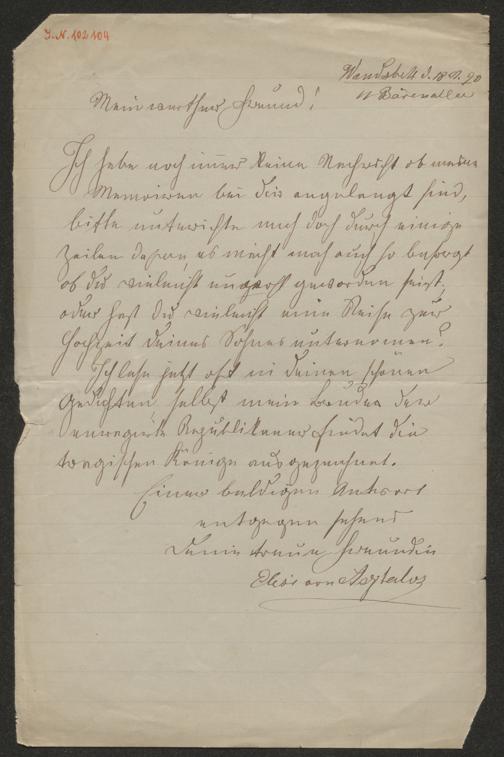 J.-N. 102104
Wandsbek d. 18
11 Bärenallee
Mein werther Freund!
Ich habe noch immer keine Nachricht ob meine
Memoiren bei dir angelangt sind,
bitte unterrichte mich doch durch einige
Zeilen davon, es macht mich auch so besorgt
ob du vielleicht unwohl geworden seist,
oder hast du vielleicht eine Reise zur
Hochzeit deines Sohnes unternommen?
Ich lese jetzt oft in deinen schönen
Gedichten, selbst mein Bruder der
enragirte Republikaner findet die
tragischen Könige ausgezeichnet.
Einer baldigen Antwort
entgegen sehend
Deine treue Freundin
Elise von Asztalos